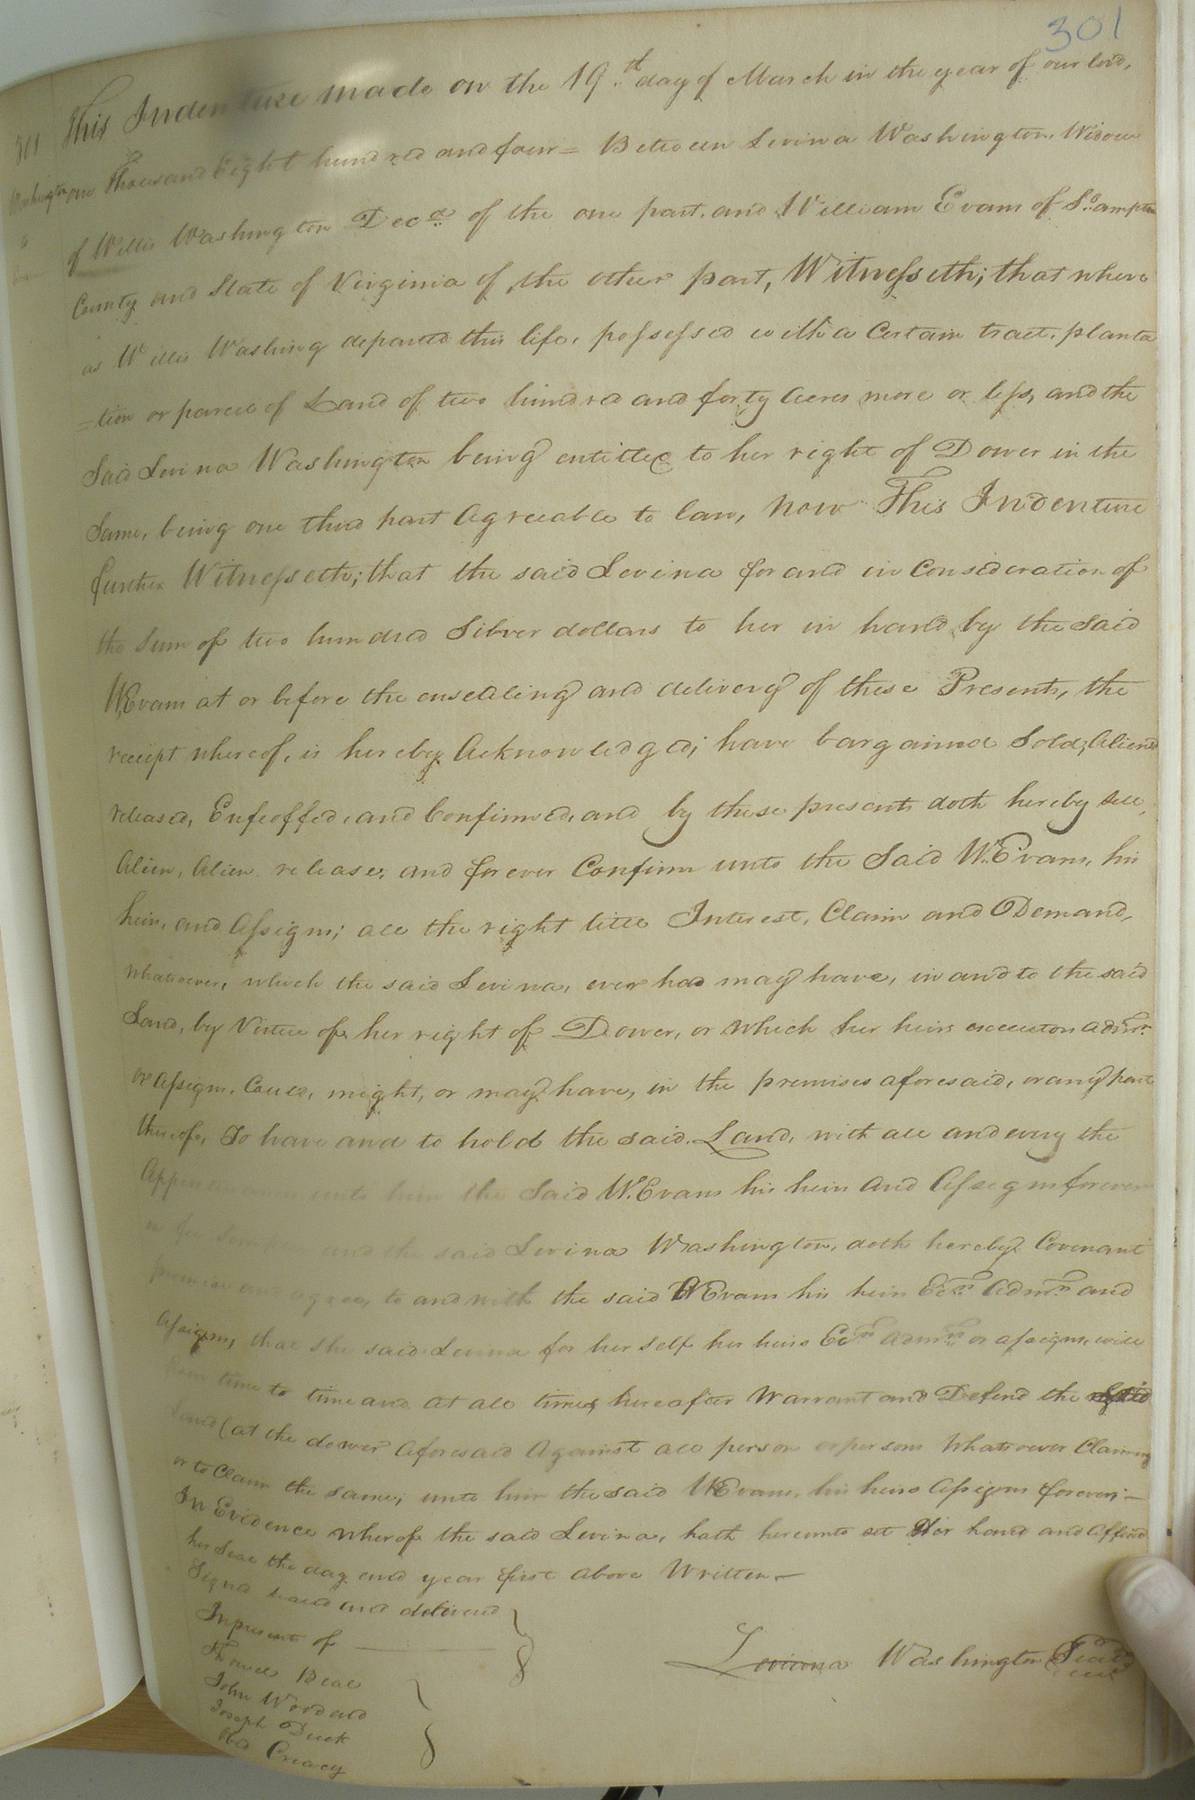 301
This Indenture made on the 19th day of March in the year of our lord,
301
Washington
one Thousand Eight hundred and four = Between Levina Washington, Widow
of Willis Washington Decd. of the one part, and William Evans of So.ampton
County and State of Virginia of the other part, Witnesseth; that where
as Willis Washing departed this life, possessed with a Certain tract, planta
=tion or parcel of Land of two hundred and forty Acres more or less, and the
Said Levina Washington being entitled to her right of Dower in the
Same, being one third part Agreeable to law, Now This Indenture
further Witnesseth; that the said Levina for and in Consideration of
the Sum of two hundred Silver dollars to her in hand by the Said
W.Evans at or before the ensealing and delivery of these Presents, the
receipt whereof, is hereby Acknowledged; have bargained Sold, Aliend
released, Enfeoffed, and Confirmed, and by these presents doth hereby sell,
Alien, Alien release, and forever Confirm unto the Said W.Evans, his
heirs, and Assigns; all the right title Interest, Claim and Demand,
whatsoever, which the said Levina, ever had may have, in and to the said
Land, by Virtue of her right of Dower, or which her heirs executors admrs.
or Assigns. Could, might, or may have, in the premises aforesaid, or any part
thereof, To have and to hold the said Land, with all and every the
Appurtenances unto him the Said W.Evans his heirs and Assigns forever
in fee Simple, and the said Levina Washington, doth hereby Covenant
promise and agree, to and with the said W Evans his heirs Ecrs. Admrs. and
Assigns, that she said Levina for her self her heirs Ecrs. admrs. or assigns, will
from time to time and at all times hereafter Warrant and Defend the
Land (at the dower Aforesaid Against all person or persons Whatsoever Claiming
or to Claim the same, unto him the said W.Evans, his heirs Assigns forever; —
In Evidence whereof the said Levina, hath hereunto set Her hand and Affixed
her Seal the day and year first above Written —
Signd seald and deliverd
In presents of
Levinna Washington Seal
Beal
John Woodard
Joseph Duck
Creacy